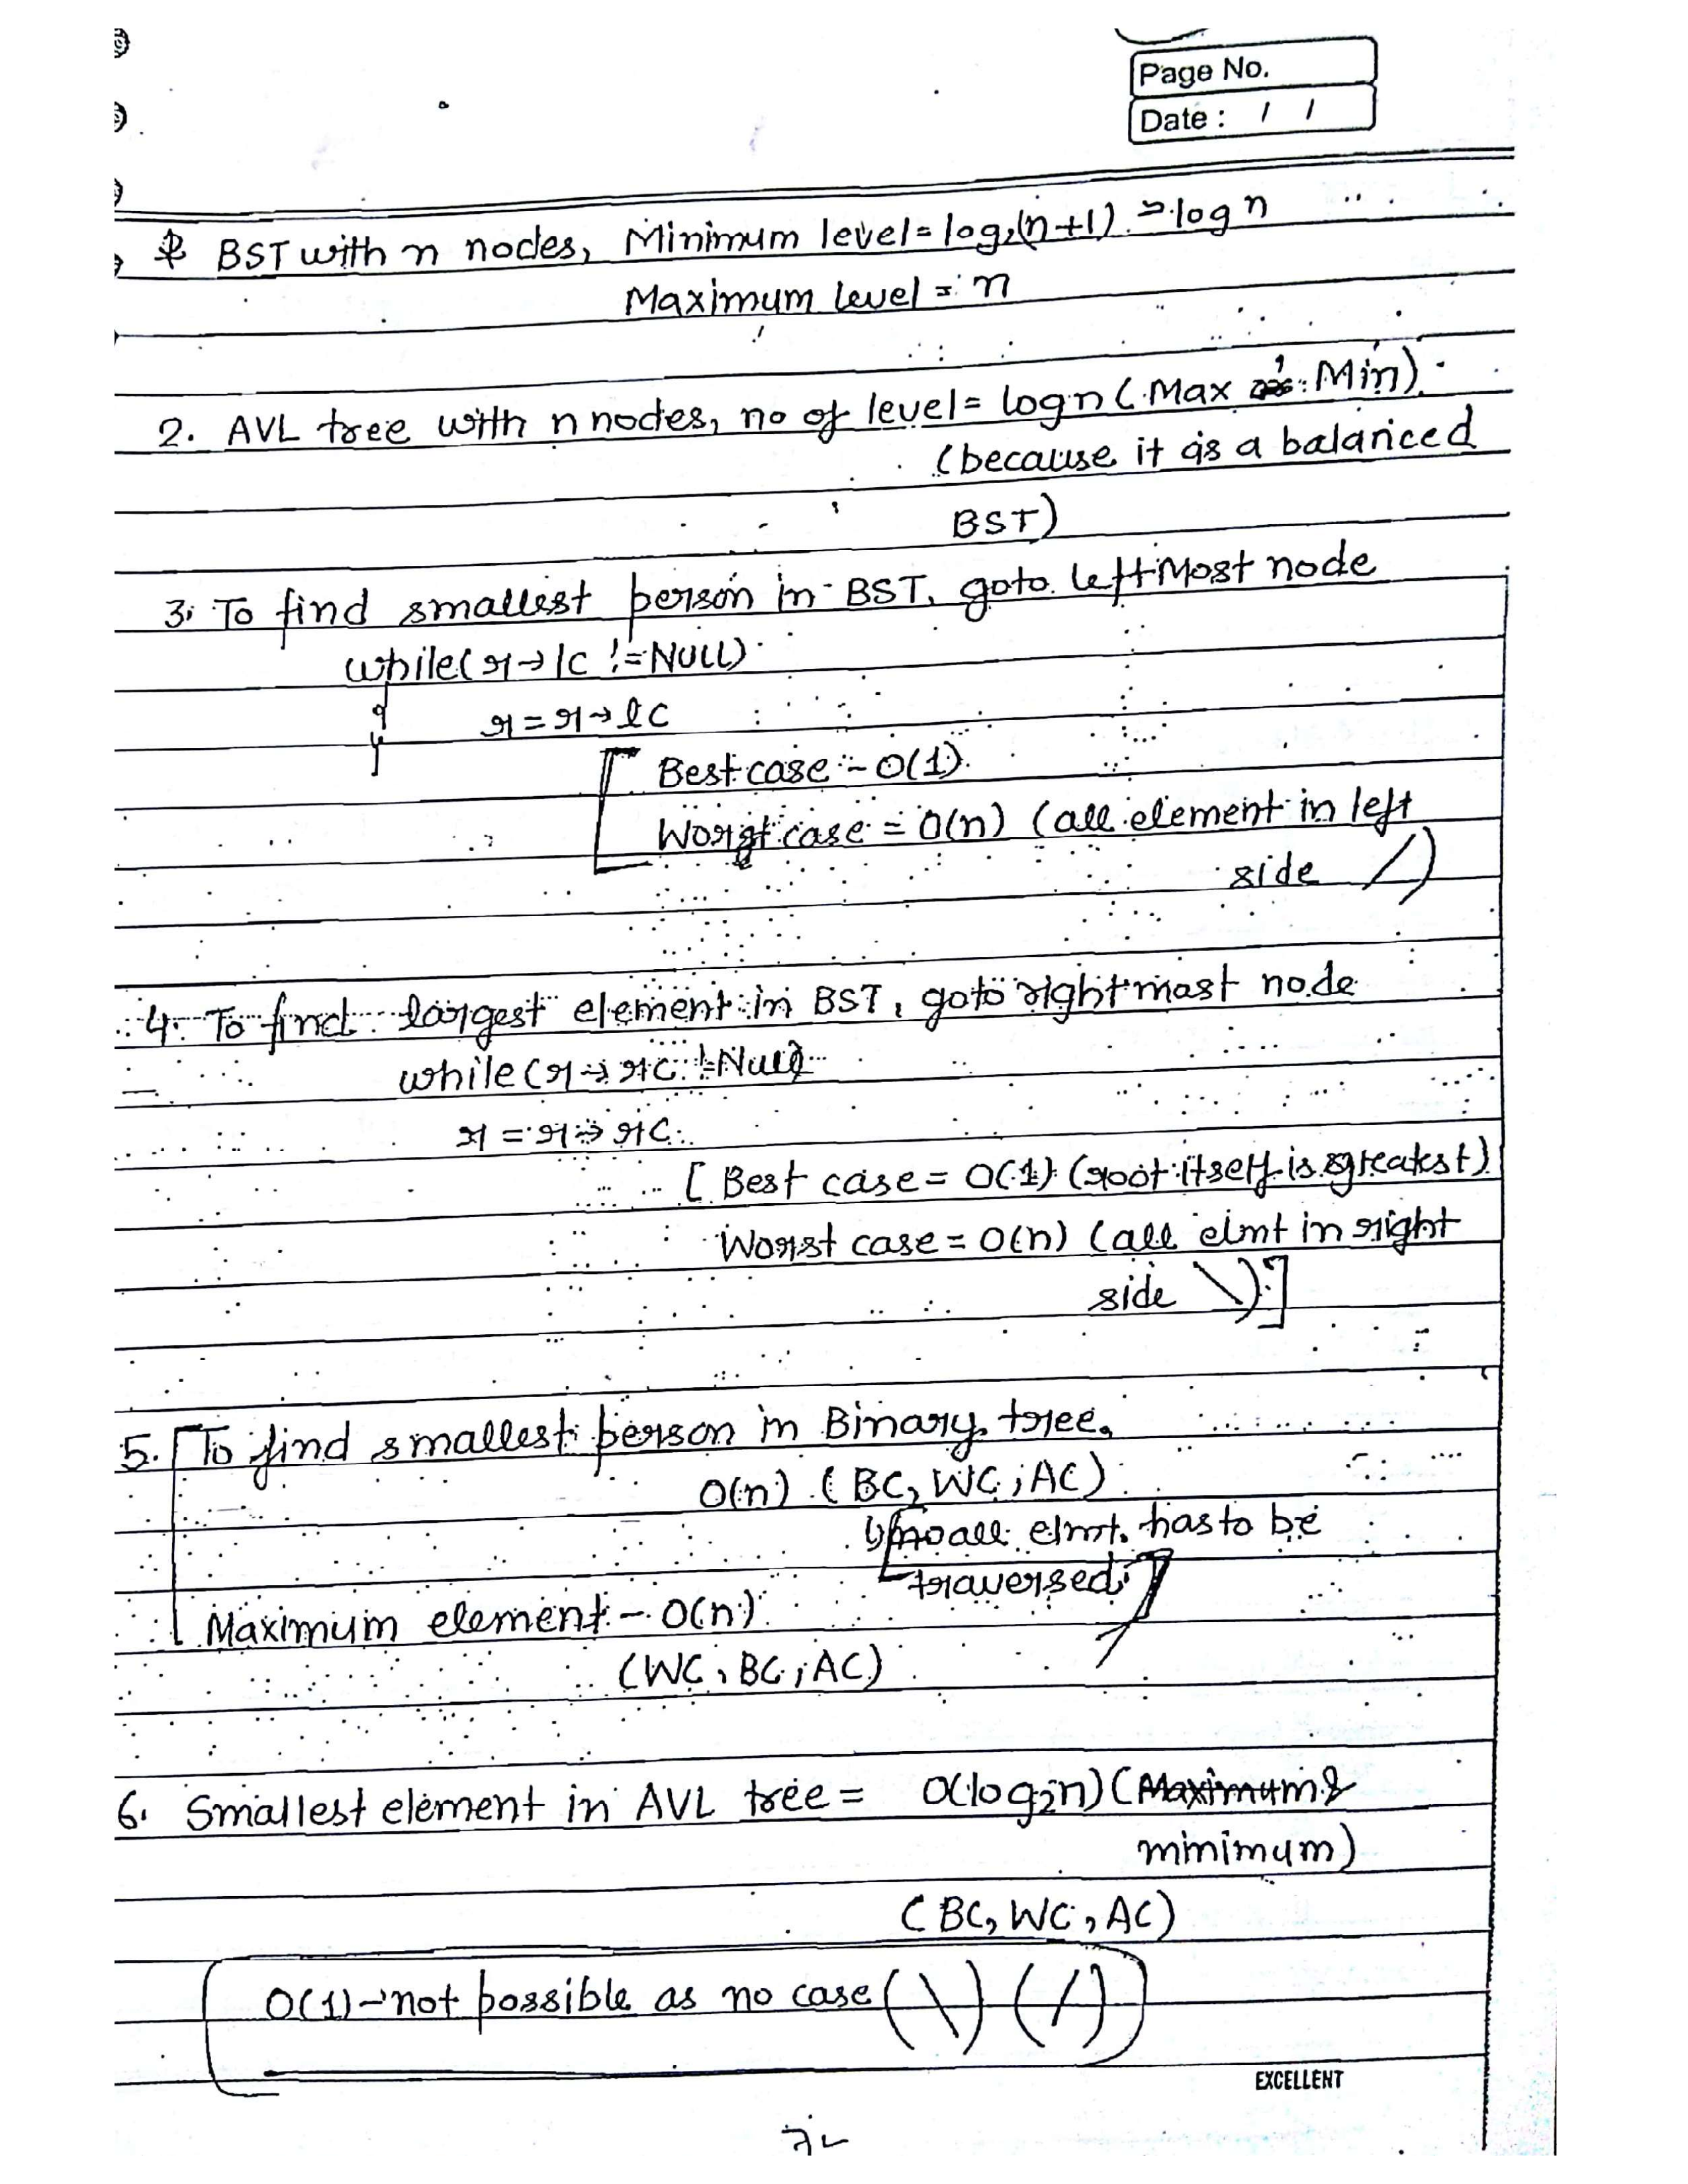 Page No.
Date : / /
BST with n nodes, Minimum level = log₂(n+1) ≃ log n
Maximum level = n
2. AVL tree with n nodes, no of level = logn (Max Min)
(because it is a balanced
BST)
3. To find smallest person in BST, goto leftMost node
while(r→lc != NULL)
{ r = r→lc
}
Best case - O(1)
Worst case = O(n) (all element in left
side /)
4. To find largest element in BST, goto rightmost node
while(r→rc != Null)
r = r→rc
[ Best case = O(1) (root itself is greatest)
Worst case = O(n) (all elmt in right
side \)]
5. [To find smallest person in Binary tree,
O(n) (BC, WC, AC)
all elmt. has to be
traversed]
Maximum element - O(n)
(WC, BC, AC)
6. Smallest element in AVL tree = O(log₂n) (Maximum &
minimum)
(BC, WC, AC)
O(1) → not possible as no case (\) (/)
EXCELLENT